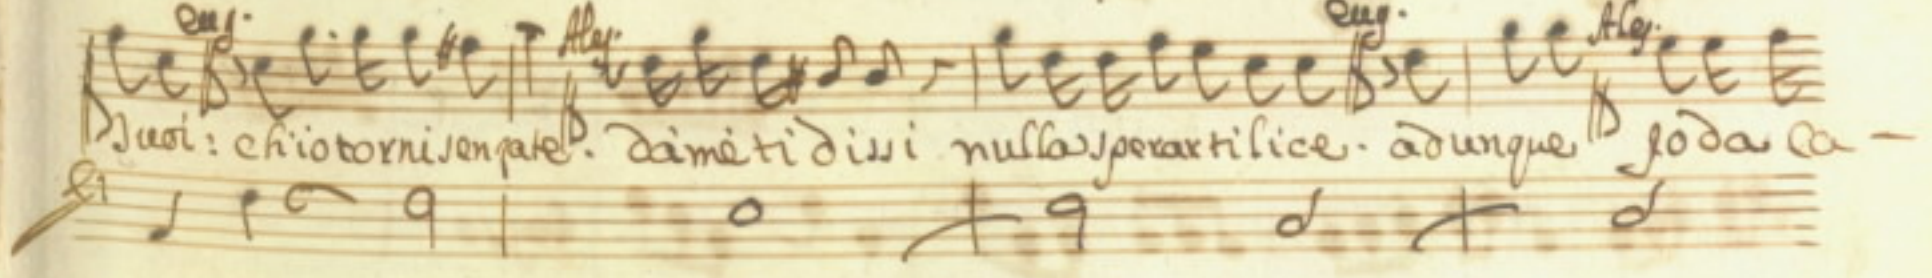 eug. Aley. eug. Aley.
suoi: ch'io torni senza te. da mè ti dissi nulla sperar ti lice. adunque godo la ca-